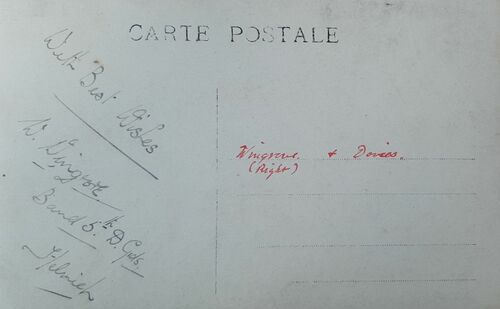 CARTE POSTALE
With Best Wishes
W. Wingrove.
Band 5th D. Gds.
Wingrove. + Davies.
(Right)